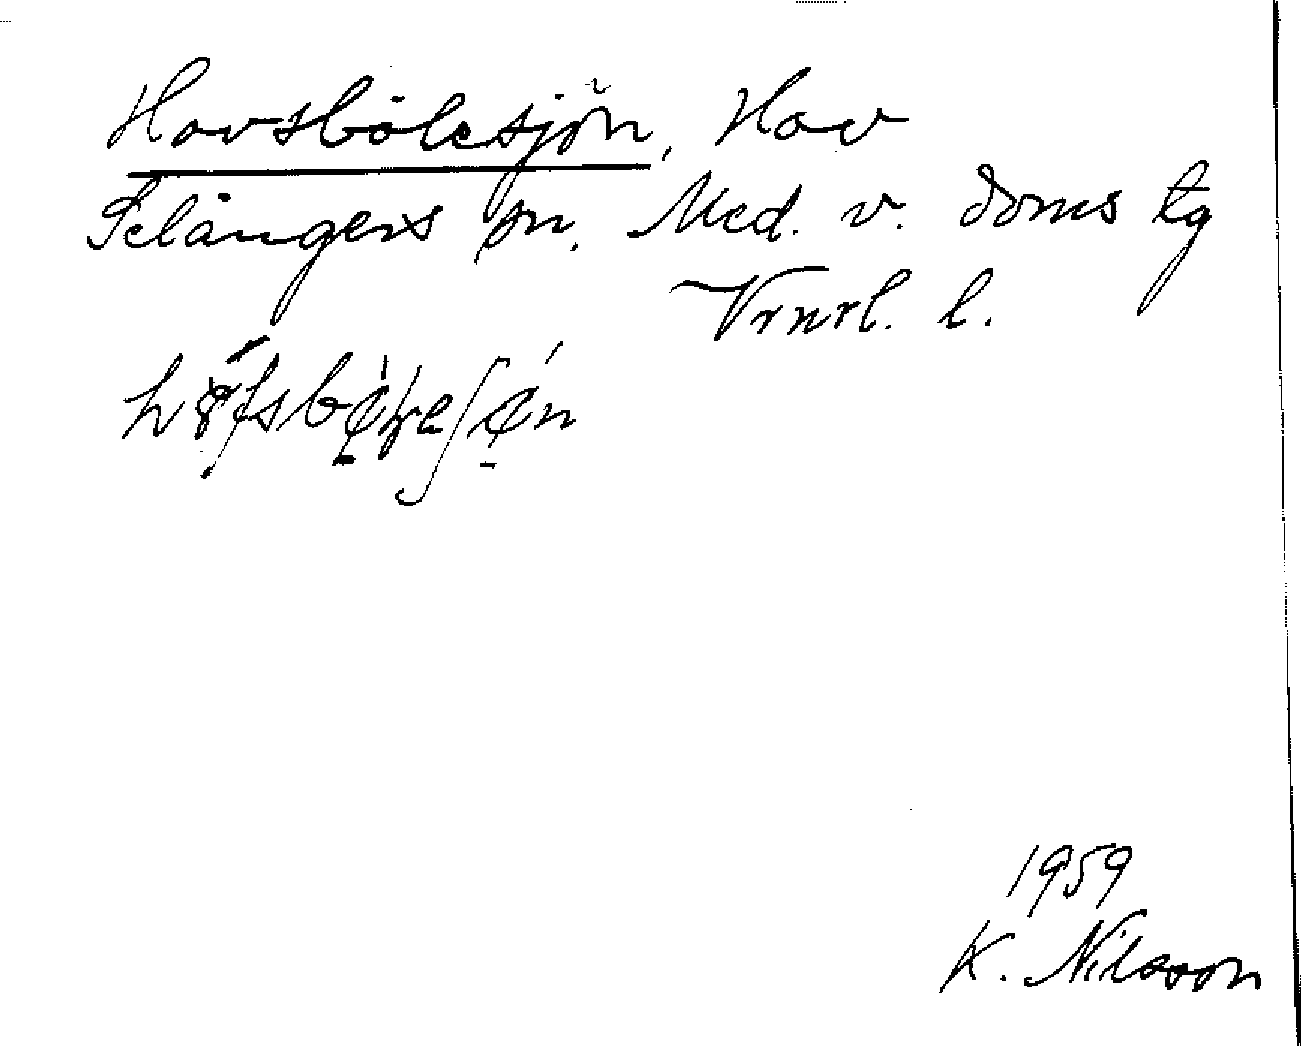 Hovsbölesjön, Hov
Selångers sn. Med. v. doms tg
Vrnrl. l.
1959
K. Nilsson